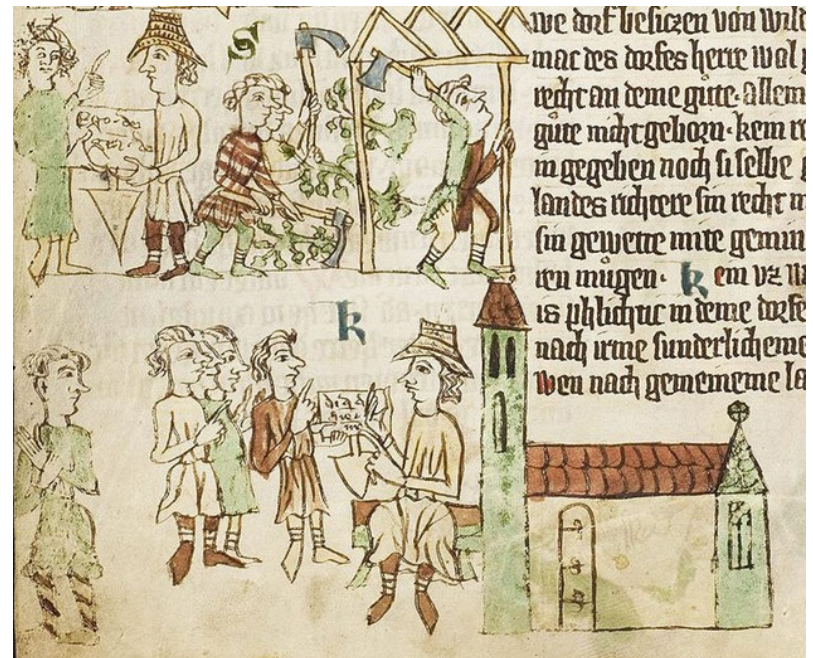 S
Ego de
gra
we dorf besiczen von wild
mac des dorfes herre wol
recht an deme gůte. allem
gůte nicht geborn. kem
in gegeben noch si selbe
landes richtere sin recht
sin gewette mite
ren můgen. kem vz
is phlichtic in deme dorfe
nach irme sunderlicheme
wen nach gemeineme la
k